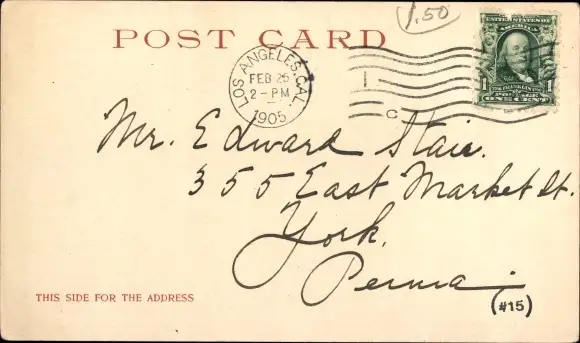 1.50
POST CARD
LOS ANGELES, CAL.
FEB 25
2-PM
1905
1
C
UNITED STATES OF AMERICA
1 POSTAGE 1
ONE CENT
Mr. Edward Stair.
355 East Market St.
York,
Penna
THIS SIDE FOR THE ADDRESS
(#15)